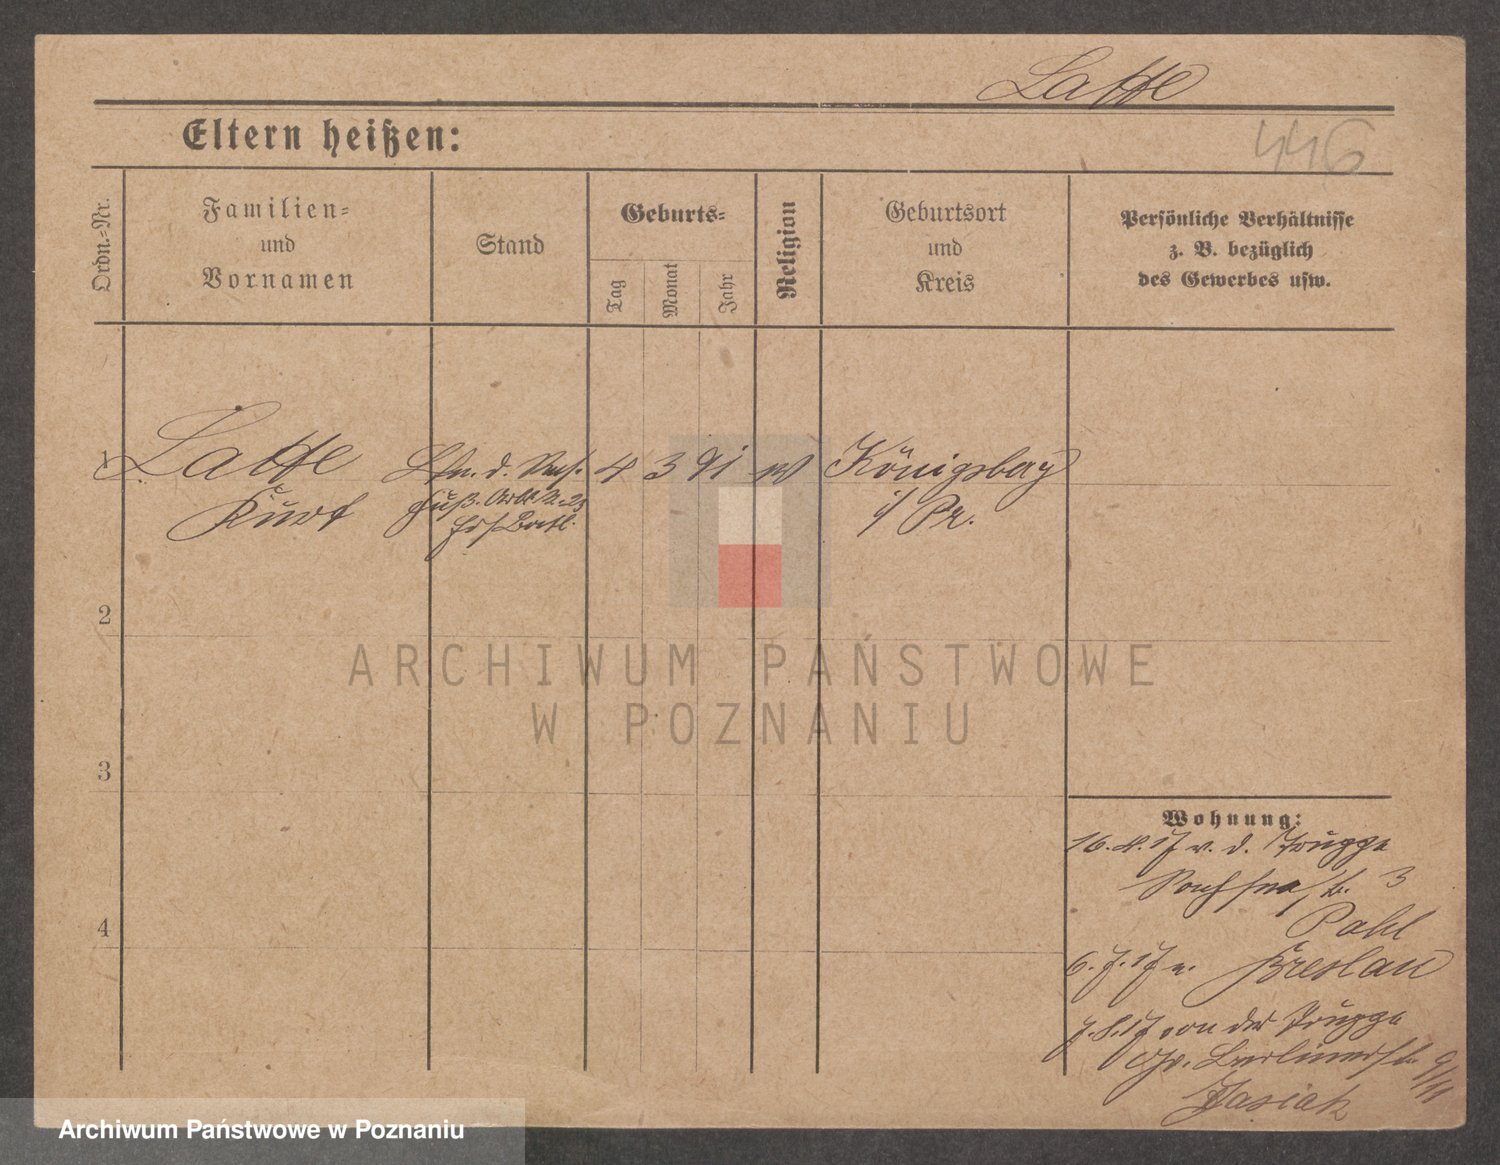 Latte
446
Eltern heißen:
Ordn.=Nr.
Familien=
und
Vornamen
Stand
Geburts=
Tag
Monat
Jahr
Religion
Geburtsort
und
Kreis
Persönliche Verhältnisse
z. B. bezüglich
des Gewerbes usw.
1 Latte Ltn. d. Res. 4 3 91 Königsberg
Kurt i/ Pr.
2
3
4
Wohnung:
16.4.17 v. d. Truppe
3
Pahl
6.7.17 n. Breslau
7.8.17 von der Truppe
Gr. Berlinerstr.
Jasiak
ARCHIWUM PAŃSTWOWE
W POZNANIU
Archiwum Państwowe w Poznaniu